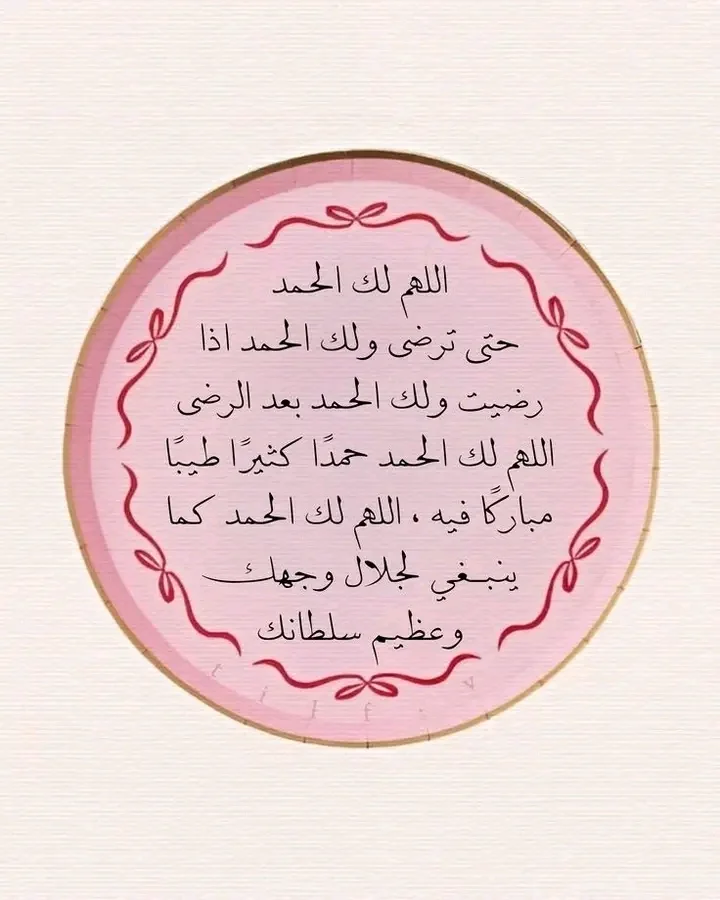 اللهم لك الحمد
حتى ترضى ولك الحمد اذا
رضيت ولك الحمد بعد الرضى
اللهم لك الحمد حمدًا كثيرًا طيبًا
مباركًا فيه ، اللهم لك الحمد كما
ينبـغي لجلال وجهك
وعظيم سلطانك